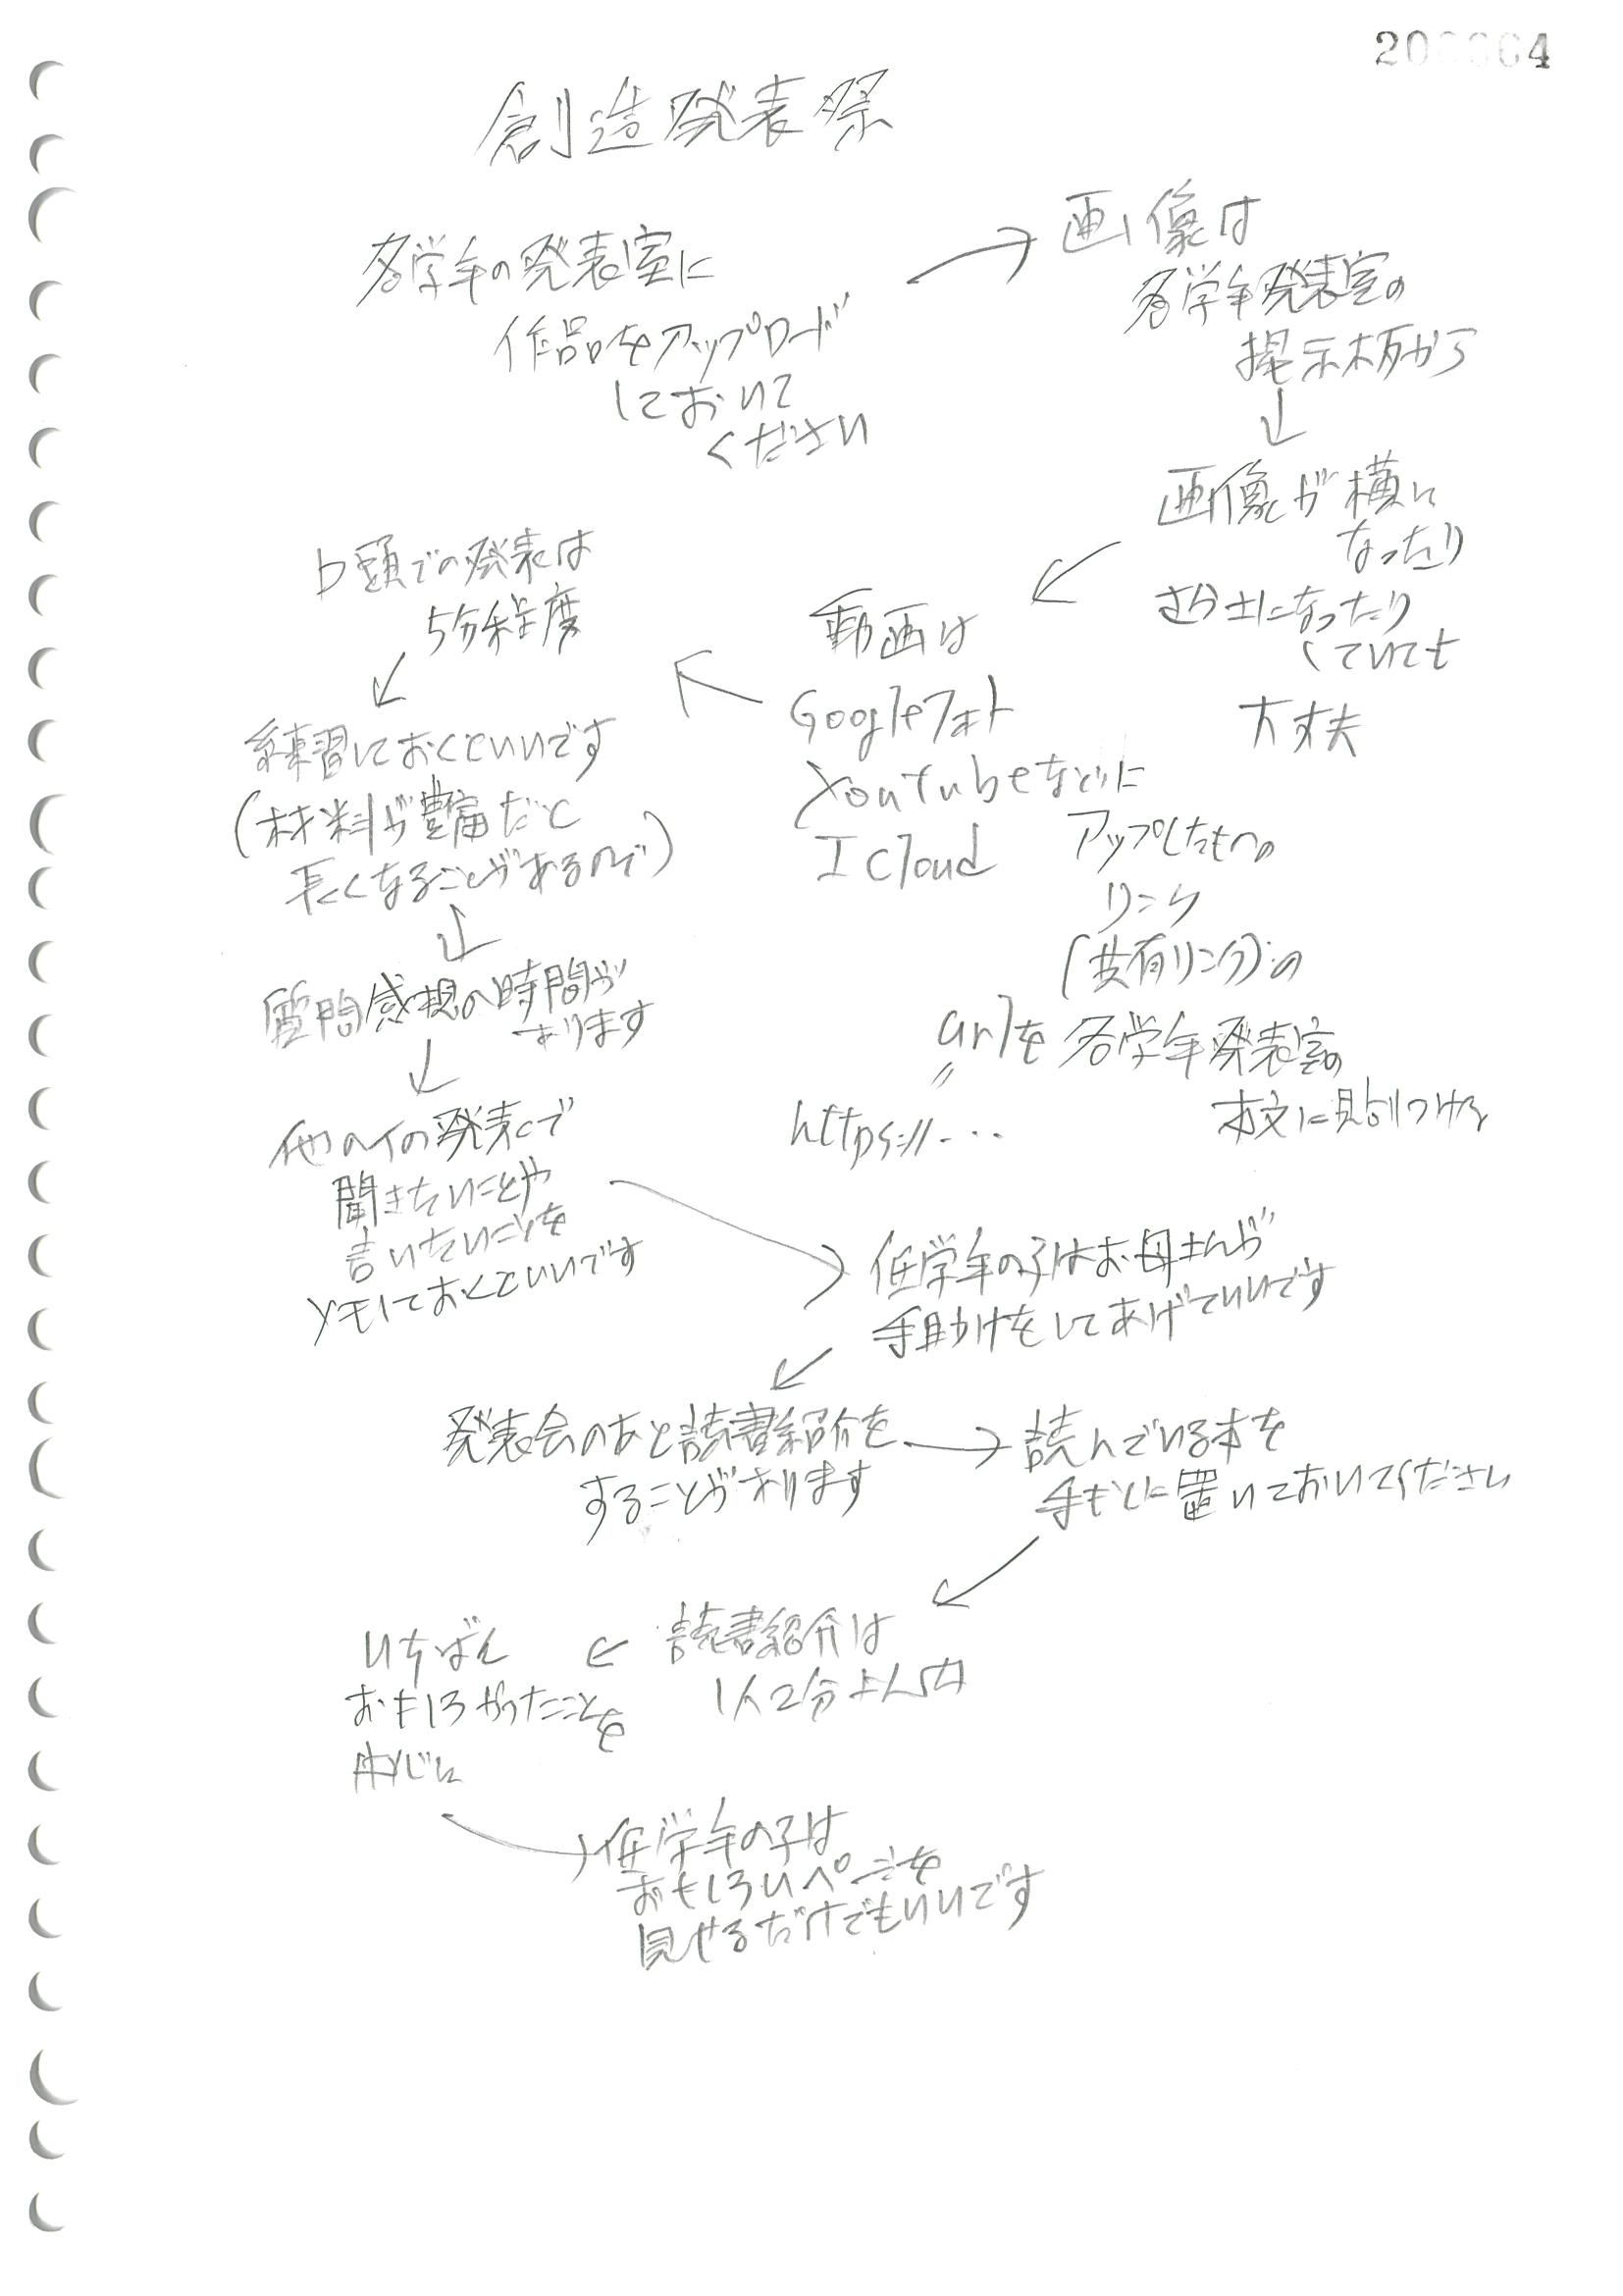 創造発表祭
各学年の発表室に
作品をアップロード
しておいて
ください
画像は
各学年発表室の
掲示板から
画像が横に
なったり
さか士になったり
していても
大丈夫
動画は
Googleフォト
Youtubeなどに
I Cloud
アップしたものの
リンク
(共有リンク)の
urlを各学年発表室の
〃
https://...
本文に貼りつける
口頭での発表は
5分程度
練習しておくといいです
(材料が豊富だと
長くなることがあるので)
質問感想の時間が
あります
他の人の発表で
聞きたいことや
言いたいことを
メモしておくといいです
低学年の子はお母さんが
手助けをしてあげていいです
発表会のあと読書紹介を
することがあります
読んでいる本を
手もとに置いておいてください
読書紹介は
1人2分以内
いちばん
おもしろかったことを
中心に
低学年の子は
おもしろいページを
見せるだけでもいいです